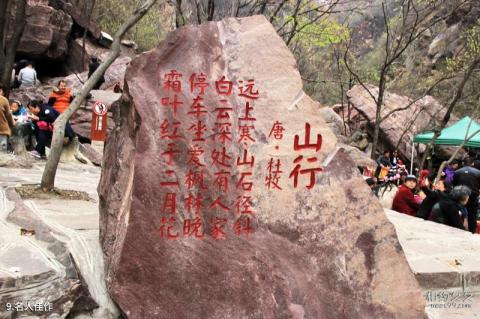 山行
唐·杜牧
远上寒山石径斜
白云深处有人家
停车坐爱枫林晚
霜叶红于二月花
9.名人佳作